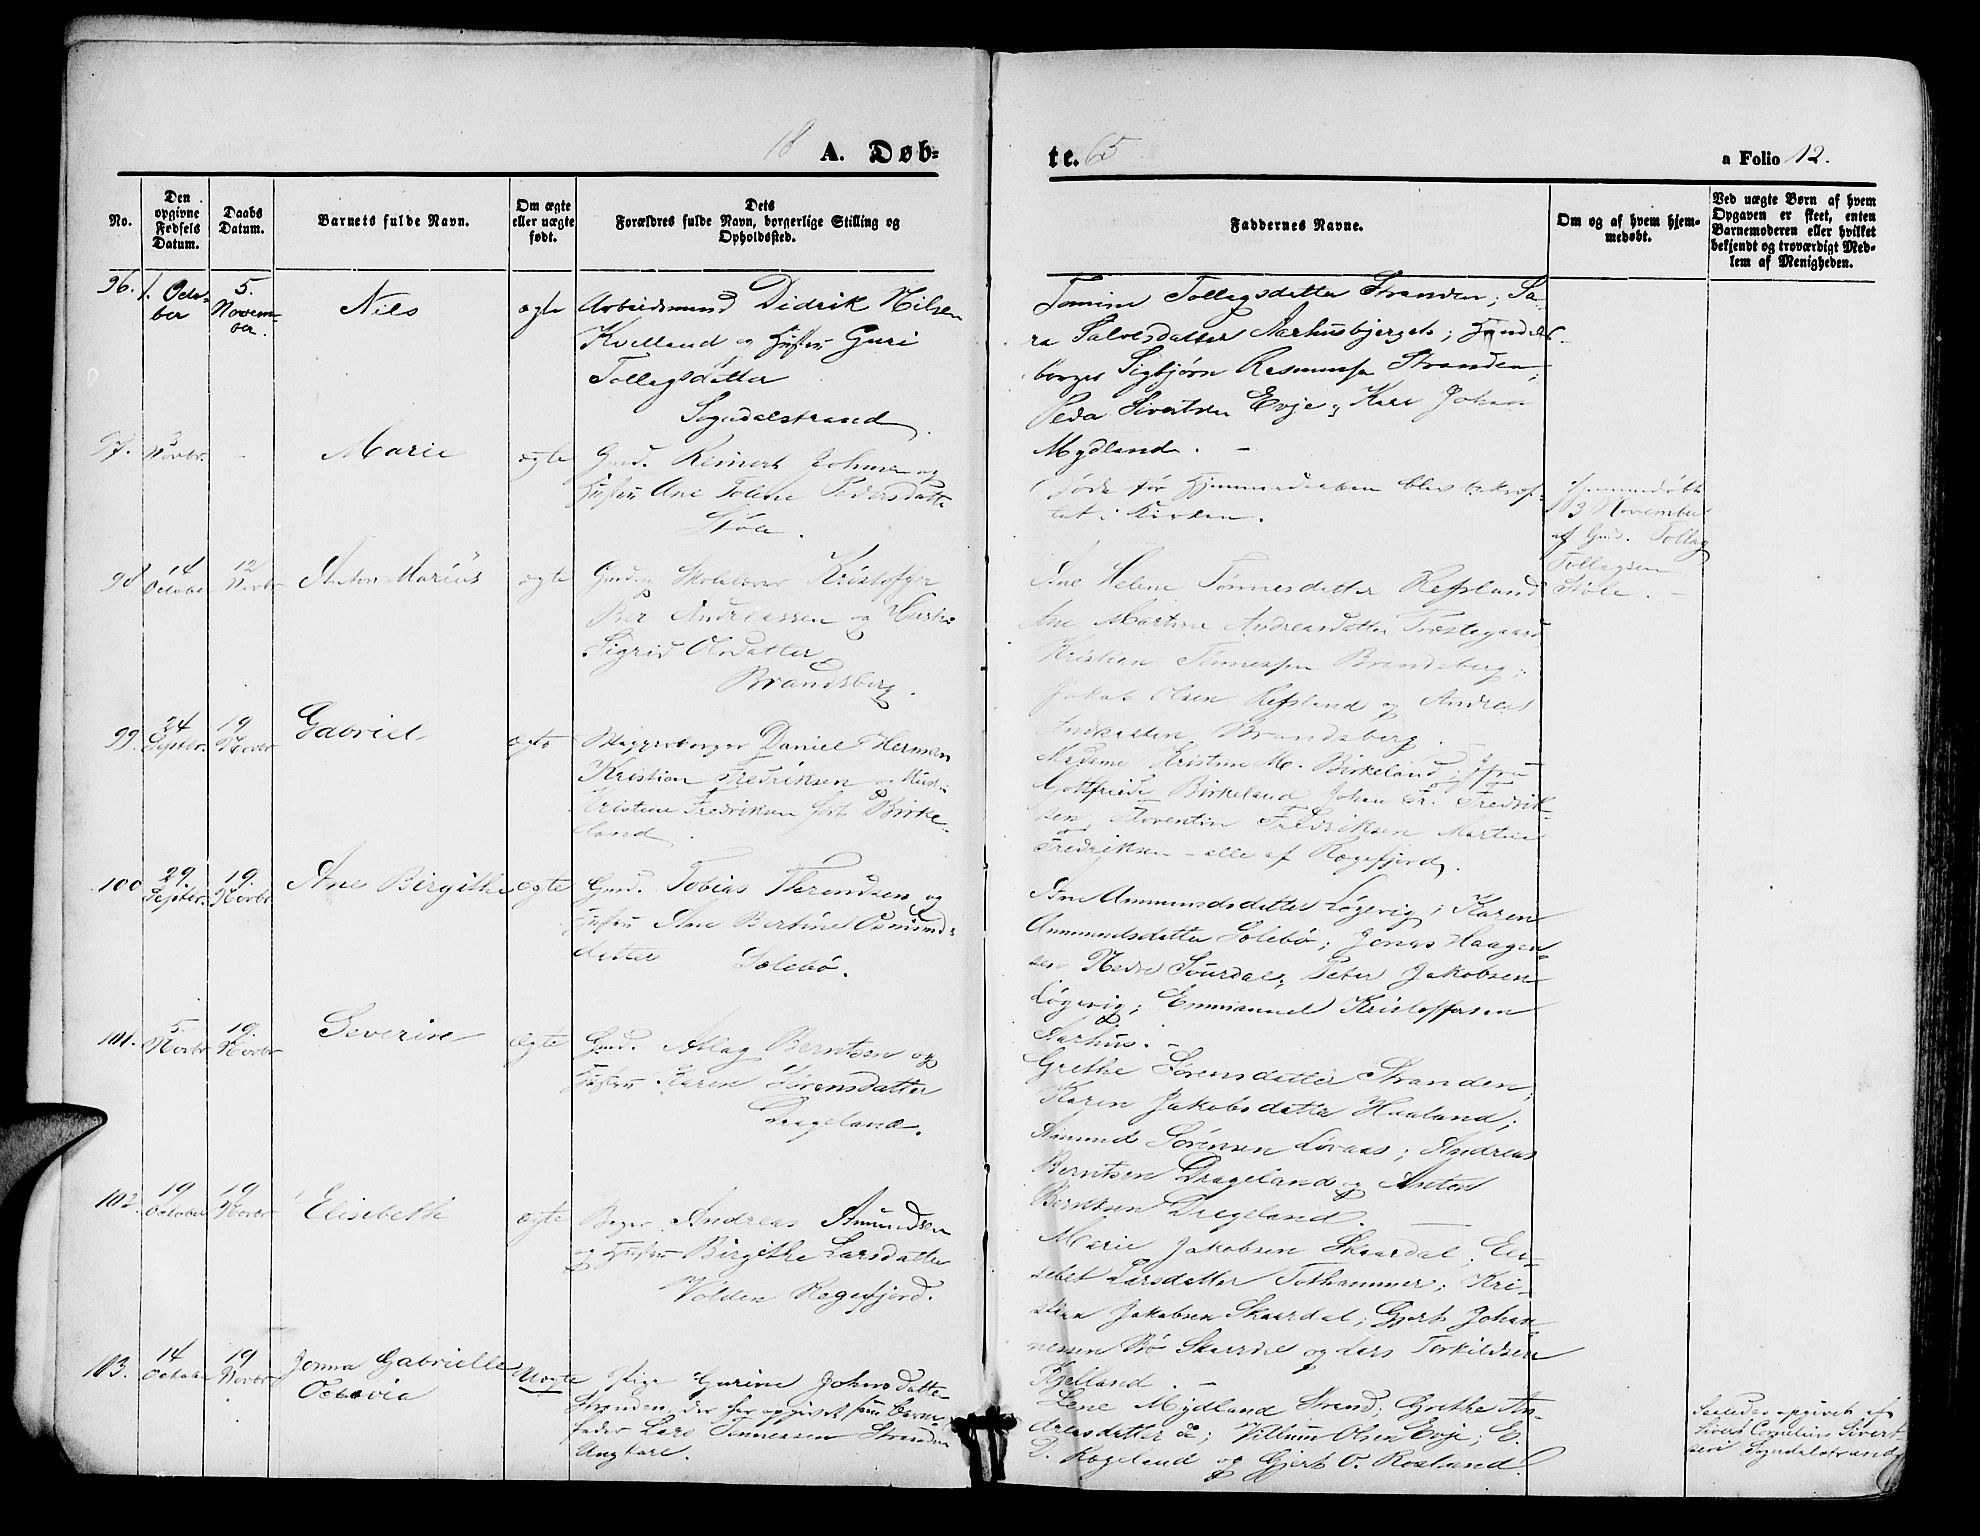 18 A. Døb-
te. 65
a Folio 12.
No.
Den opgivne Fødsels Datum.
Daabs Datum.
Barnets fulde Navn.
Om ægte eller uægte født.
Dets Forældres fulde Navn, borgerlige Stilling og Opholdssted.
Faddernes Navne.
Om og af hvem hjemmedøbt.
Ved uægte Børn af hvem Opgaven er skeet, enten Barnemoderen eller hvilket bekjendt og troværdigt Medlem af Menigheden.
96. 1. Octo-
ber
5.
Novem-
ber.
Nils
ægte
Arbeidsmand Didrik Nilsen
Kvelland og Hustru Guri
Tollagsdatter
Sogndalstrand.
Tomine Tollagsdatter Stranden; Sa-
ra Salvesdatter Aarhusbjerget; Handels-
borger Sigbjørn Rasmussen Stranden;
Peder Sivertsen Evje; Karl Johan
Mydland. -
97. 3 Novbr.
-
Marie
ægte
Gmd. Reinert Johnsen og
Hustru Ane Tolene Pedersdatter
Støle.
Døde før Hjemmedaaben blev bekræf-
tet i Kirken.
Hjemmedøbt
3 November
af Gmd. Tollag
Tollagsen
Støle. -
98. 14
October
12
Novbr
Anton Marius
ægte
Gmd. og Skolelærer Kristoffer
Ber Andreassen og Hustru
Sigrid Olsdatter
Brandsberg.
Ane Helene Tønnesdatter Refsland
Ane Martine Andreasdatter Træstegaard,
Kristian Tønnessen Brandsberg;
Jakob Olsen Refsland og Andreas
Andreassen Brandsberg. -
99. 24
Septbr.
19
Novbr
Gabriel
ægte
Daniel Herman
Kristian Fredriksen og Hustru
Kristine Fredriksen født Birke-
land.
Madame Kristine M. Birkeland; Jfru
Gottfriede Birkeland, Johan Fr. Fredrik-
sen, Torentin Fredriksen Martin
Fredriksen - alle af Rægefjord.
100 29.
Septbr.
19.
Novbr
Ane Birgithe
ægte
Gmd. Tobias Terendsen og
Hustru Ane Bertine Osmunds-
datter Solebø.
Ane Ammundsdatter Løgevig; Karen
Ammundsdatter Solebø; Jonas Haagen-
sen Nedre Svurdal; Peter Jakobsen
Løgevig; Emmanuel Kristoffersen
Aarhus. -
101. 5.
Novbr
19.
Novbr
Severine
ægte
Gmd. Aslag Berntsen og
Hustru Karen Sørensdatter
Drageland.
Grethe Sørensdatter Stranden;
Karen Jakobsdatter Haaland;
Amund Sørensen Løvaas; Andreas
Berntsen Drageland og Anton
Berntsen Drageland. -
102. 19
October
19
Novbr
Elisabeth
ægte
Andreas Amundsen
og Hustru Birgithe Larsdatter
Volden Rægefjord.
Marie Jakobsen Skaardal; Eli-
sebet Larsdatter Tothammer; Kri-
stian Jakobsen Skaardal; Gjert Johan-
nessen Bø Skaardal og Lars Torkildsen
Kjelland. -
103. 14
October
19
Novbr
Jonna Gabrielle
Octavia
Uægte
Pige Gurine Johnsdatter
Stranden, der har opgivet som Barne-
fader Lars Tønnessen Stranden
Ungkarl.
Lene Mydland Strand; Grethe An-
dreasdatter do; Villum Olsen Evje; E.
D. Rægeland og Gjert O. Rosland.
Saaledes opgivet af
Sivert Cornelius Sivert-
sen Sogndalstrand